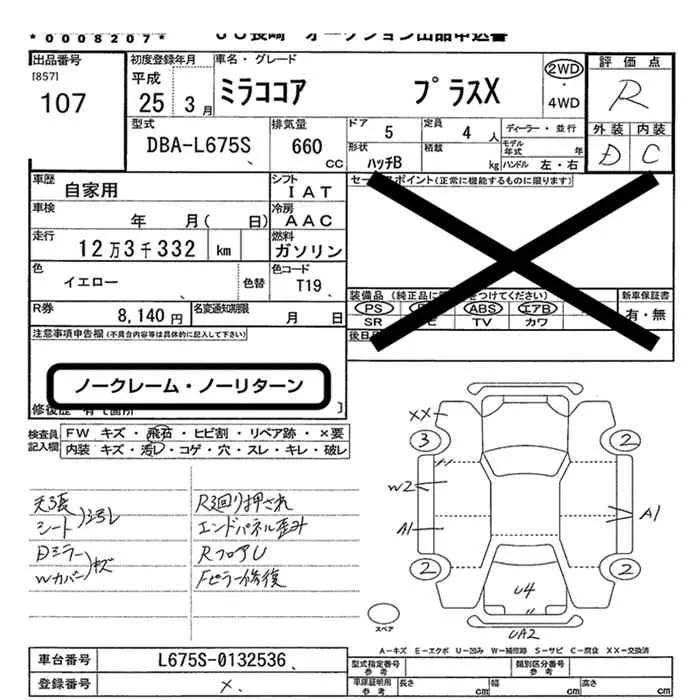 *0008207* JU長崎 オークション出品申込書
出品番号 [857] 107
初度登録年月 平成 25 3月
車名・グレード ミラココア プラスX
2WD・4WD
評価点 R
外装 D 内装 C
型式 DBA-L675S
排気量 660 CC
ドア 5 定員 4人 ディーラー・並行
形状 ハッチB 積載 kg モデル年式 年
ハンドル 左・右
車歴 自家用
シフト IAT
セールスポイント(正常に機能するものに限ります)
車検 年 月( 日)
冷房 AAC
走行 12万3千332 km
燃料 ガソリン
色 イエロー 色替
色コード T19
装備品 (純正品に をつけてください)
PS ABS エアB
SR TV カワ
新車保証書 有・無
R券 8,140円 名変通知期限 月 日
後日
注意事項申告欄 (不具合内容等は具体的に記入して下さい)
ノークレーム・ノーリターン
修復歴 有で箇所
検査員記入欄
FW キズ・飛石・ヒビ割・リペア跡・×要
内装 キズ・汚レ・コゲ・穴・スレ・キレ・破レ
天張
シート
Dミラー
Wカバー キズ
R廻り押され
エンドパネル歪み
RフロアU
Fピラー修復
XX
3 2
W2
A1 A1
2 2
U4
UA2
スペア
A-キズ E-エクボ U-凹み W-補修跡 S-サビ C-腐食 XX-交換済
車台番号 L675S-0132536
登録番号 ×
型式指定番号 参考 類別区分番号 参考
車庫証明用 参考 長さ cm 幅 cm 高さ cm